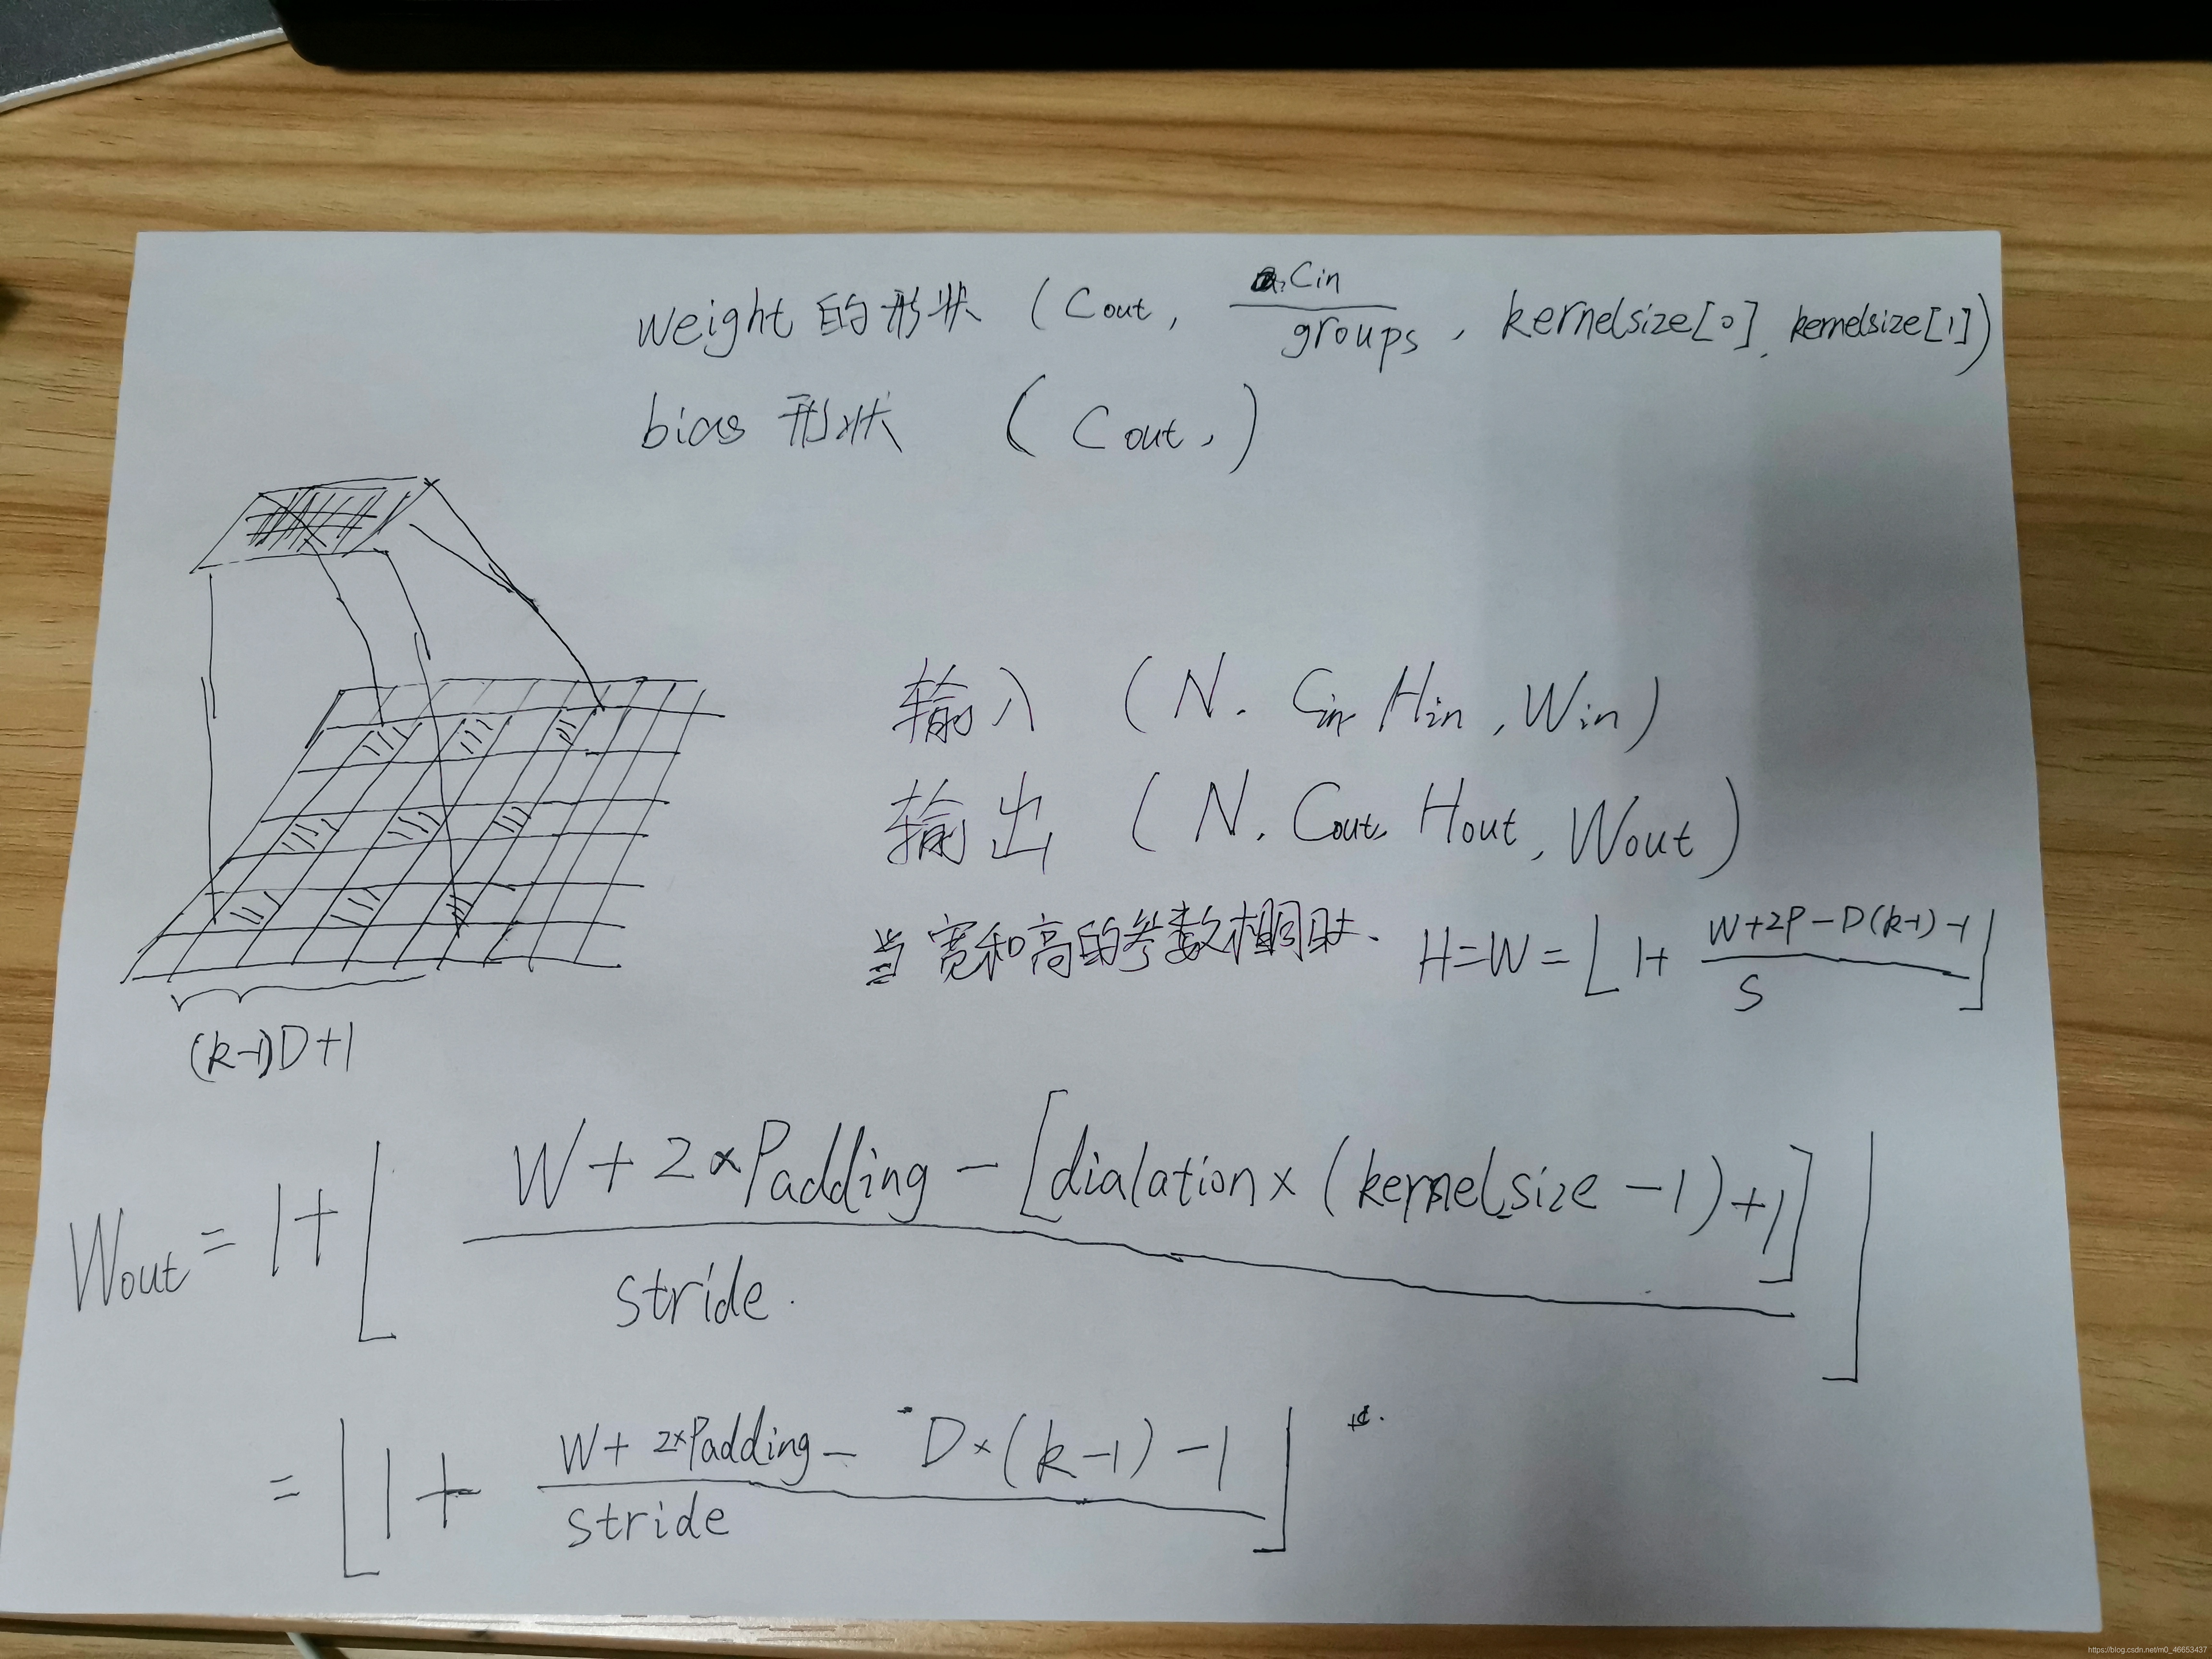 weight 的形状 (Cout, Cin/groups, kernelsize[0], kernelsize[1])
bias 形状 (Cout,)
输入 (N. Cin Hin, Win)
输出 (N, Cout, Hout, Wout)
当宽和高的参数相同时. H=W=⌊1+ (W+2P-D(k-1)-1)/S⌋
(k-1)D+1
Wout = 1+⌊(W+2×Padding-[dialation×(kernelsize-1)+1])/stride.⌋
=⌊1+ (W+2×Padding-D×(k-1)-1)/stride⌋
https://blog.csdn.net/m0_46653437